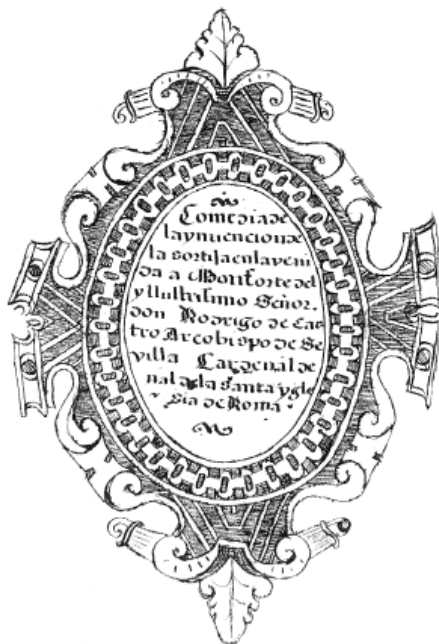 Comedia de
la ynuencion de
la sortija en la veni
da a Monforte del
yllustrisimo Señor.
don Rodrigo de Cas
tro Arcobispo de Se
villa Cardenal de
nal de la santa ygle
sia de Roma.